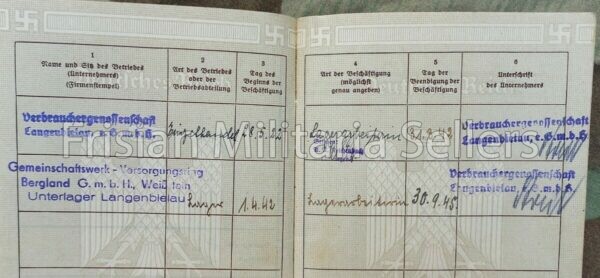 1
Name und Sitz des Betriebes
(Unternehmers)
(Firmenstempel)
2
Art des Betriebes
oder der
Betriebsabteilung
3
Tag des
Beginns der
Beschäftigung
4
Art der Beschäftigung
(möglichst
genau angeben)
5
Tag der
Beendigung der
Beschäftigung
6
Unterschrift
des Unternehmers
Verbrauchergenossenschaft
Langenbielau, e.G.m.b.H.
Einzelhandel
Lagerarbeiterin
31.3.42
Verbrauchergenossenschaft
Langenbielau, e.G.m.b.H
Gemeinschaftswerk-Versorgungsring
Bergland G.m.b.H., Weißstein
Unterlager Langenbielau
Lager
1.4.42
Lagerarbeiterin
30.9.45.
Verbrauchergenossenschaft
Langenbielau, e.G.m.b.H
Frisian Militaria Sellers